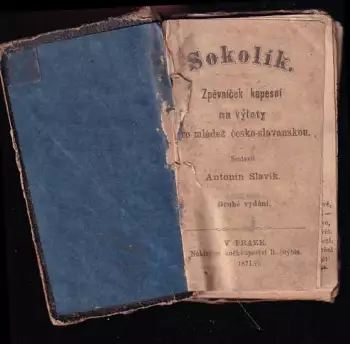 Sokolík.
Zpěvníček kapesní
na výlety
ro mládež česko-slovanskou.
Sestavil
Antonín Slavík.
Druhé vydání.
V PRAZE.
kněhkupectví
1871.